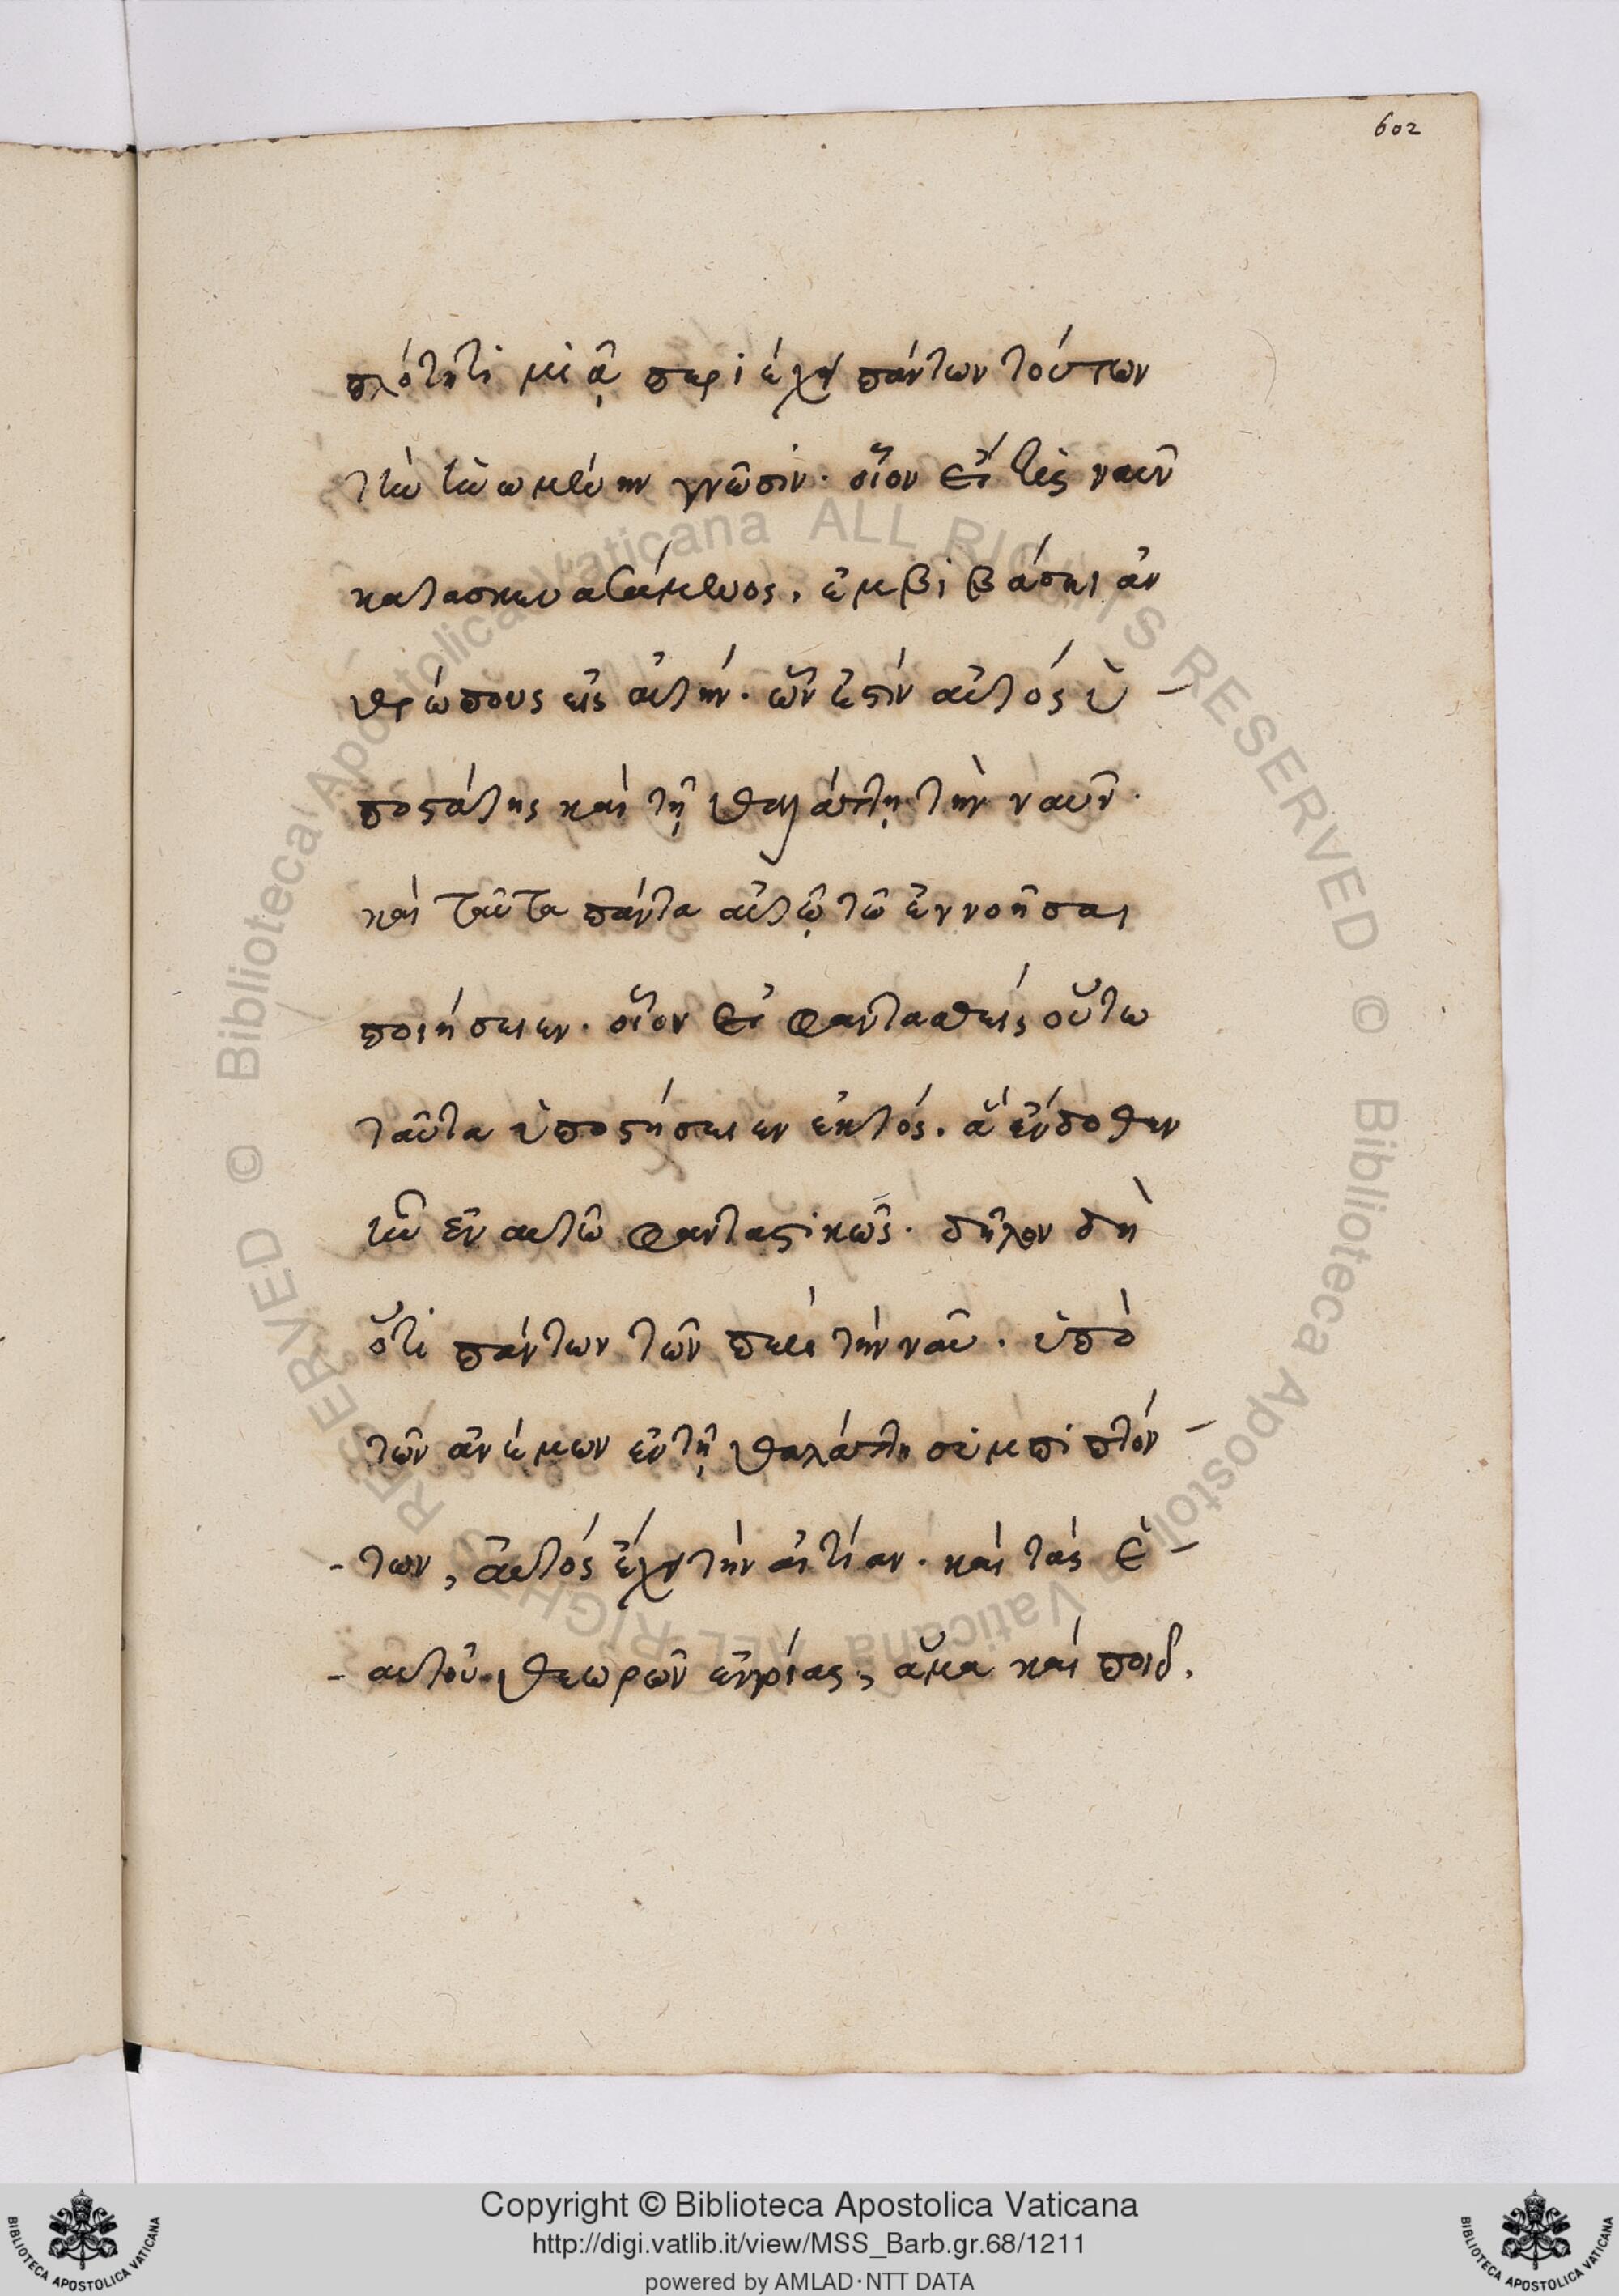 602
πλότητι μιᾷ περιέχει πάντων τούτων
τὴν ἡνωμένην γνῶσιν. οἷον εἴ τις ναῦν
κατασκευασάμενος, ἐμβιβάσει ἀν
θρώπους εἰς αὐτήν. ὧν ἐστίν αὐτός ὑ-
ποστάτης καὶ τῇ θαλάττῃ τὴν ναῦν.
καὶ ταῦτα πάντα αὐτῷ τῶ ἐννοῆσαι
ποιήσειεν. οἷον εἰ φαντασθείς οὕτω
ταῦτα ὑποστήσειεν ἐκτός. ἅ ἔνδοθεν
ἦν ἐν αυτῶ φανταστικῶς. δῆλον δὴ
ὅτι πάντων τῶν περὶ τὴν ναῦ. ὑπὸ
τῶν ἀνέμων ἐν τῇ θαλάττη συμπιπτόν-
-των, αὐτός ἔχει τὴν αἰτίαν. καὶ τάς ἑ-
-αυτοῦ θεωρῶν ἐννοίας, ἅμα καὶ ποιεῖ.
Copyright © Biblioteca Apostolica Vaticana
http://digi.vatlib.it/view/MSS_Barb.gr.68/1211
powered by AMLAD·NTT DATA